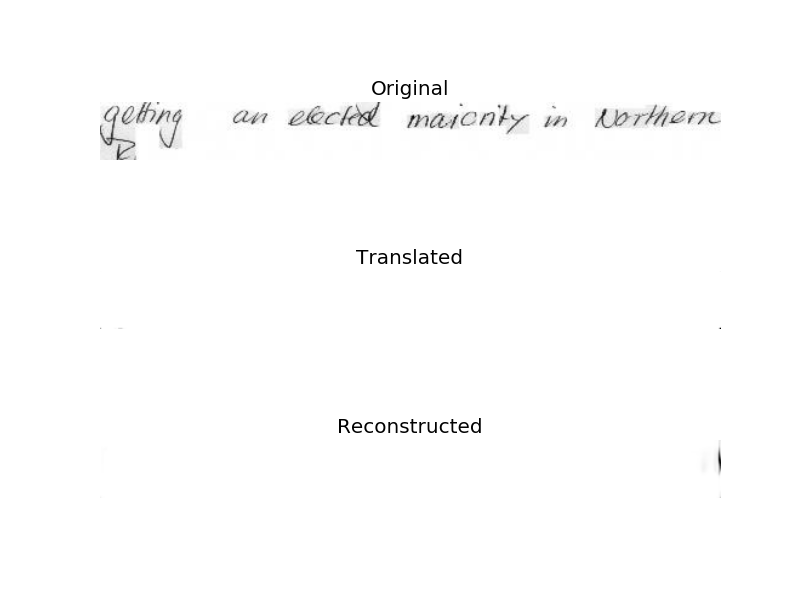 Original
getting an elected majority in Northern
Translated
Reconstructed